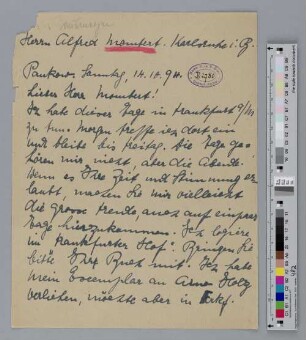 Herrn Alfred Mombert. Karlsruhe i. B.
Pankow. Sonntag, 14.10.94.
Lieber Herr Mombert!
Ich habe dieser Tage in Frankfurt a/M
zu tun. Morgen treffe ich dort ein
und bleibe bis Freitag. Die Tage ge-
hören mir nicht, aber die Abende.
Wenn es Ihre Zeit und Stimmung er-
laubt, machen Sie mir vielleicht
die grosse Freude, auch auf einige
Tage hierzukommen. Ich logiere
im "Frankfurter Hof". Bringen Sie
bitte Ihr Buch mit. Ich habe
mein Exemplar an Arno Holz
verliehen, möchte aber in Frkf.